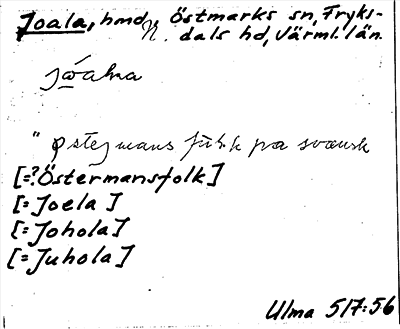 Joala, hmd, Östmarks sn, Fryks-
N. dals hd, Värml. län.
" østejmans fålk pa svænsk
[=? Östermansfolk]
[= Joela]
[= Johola]
[= Juhola]
Ulma 517:56